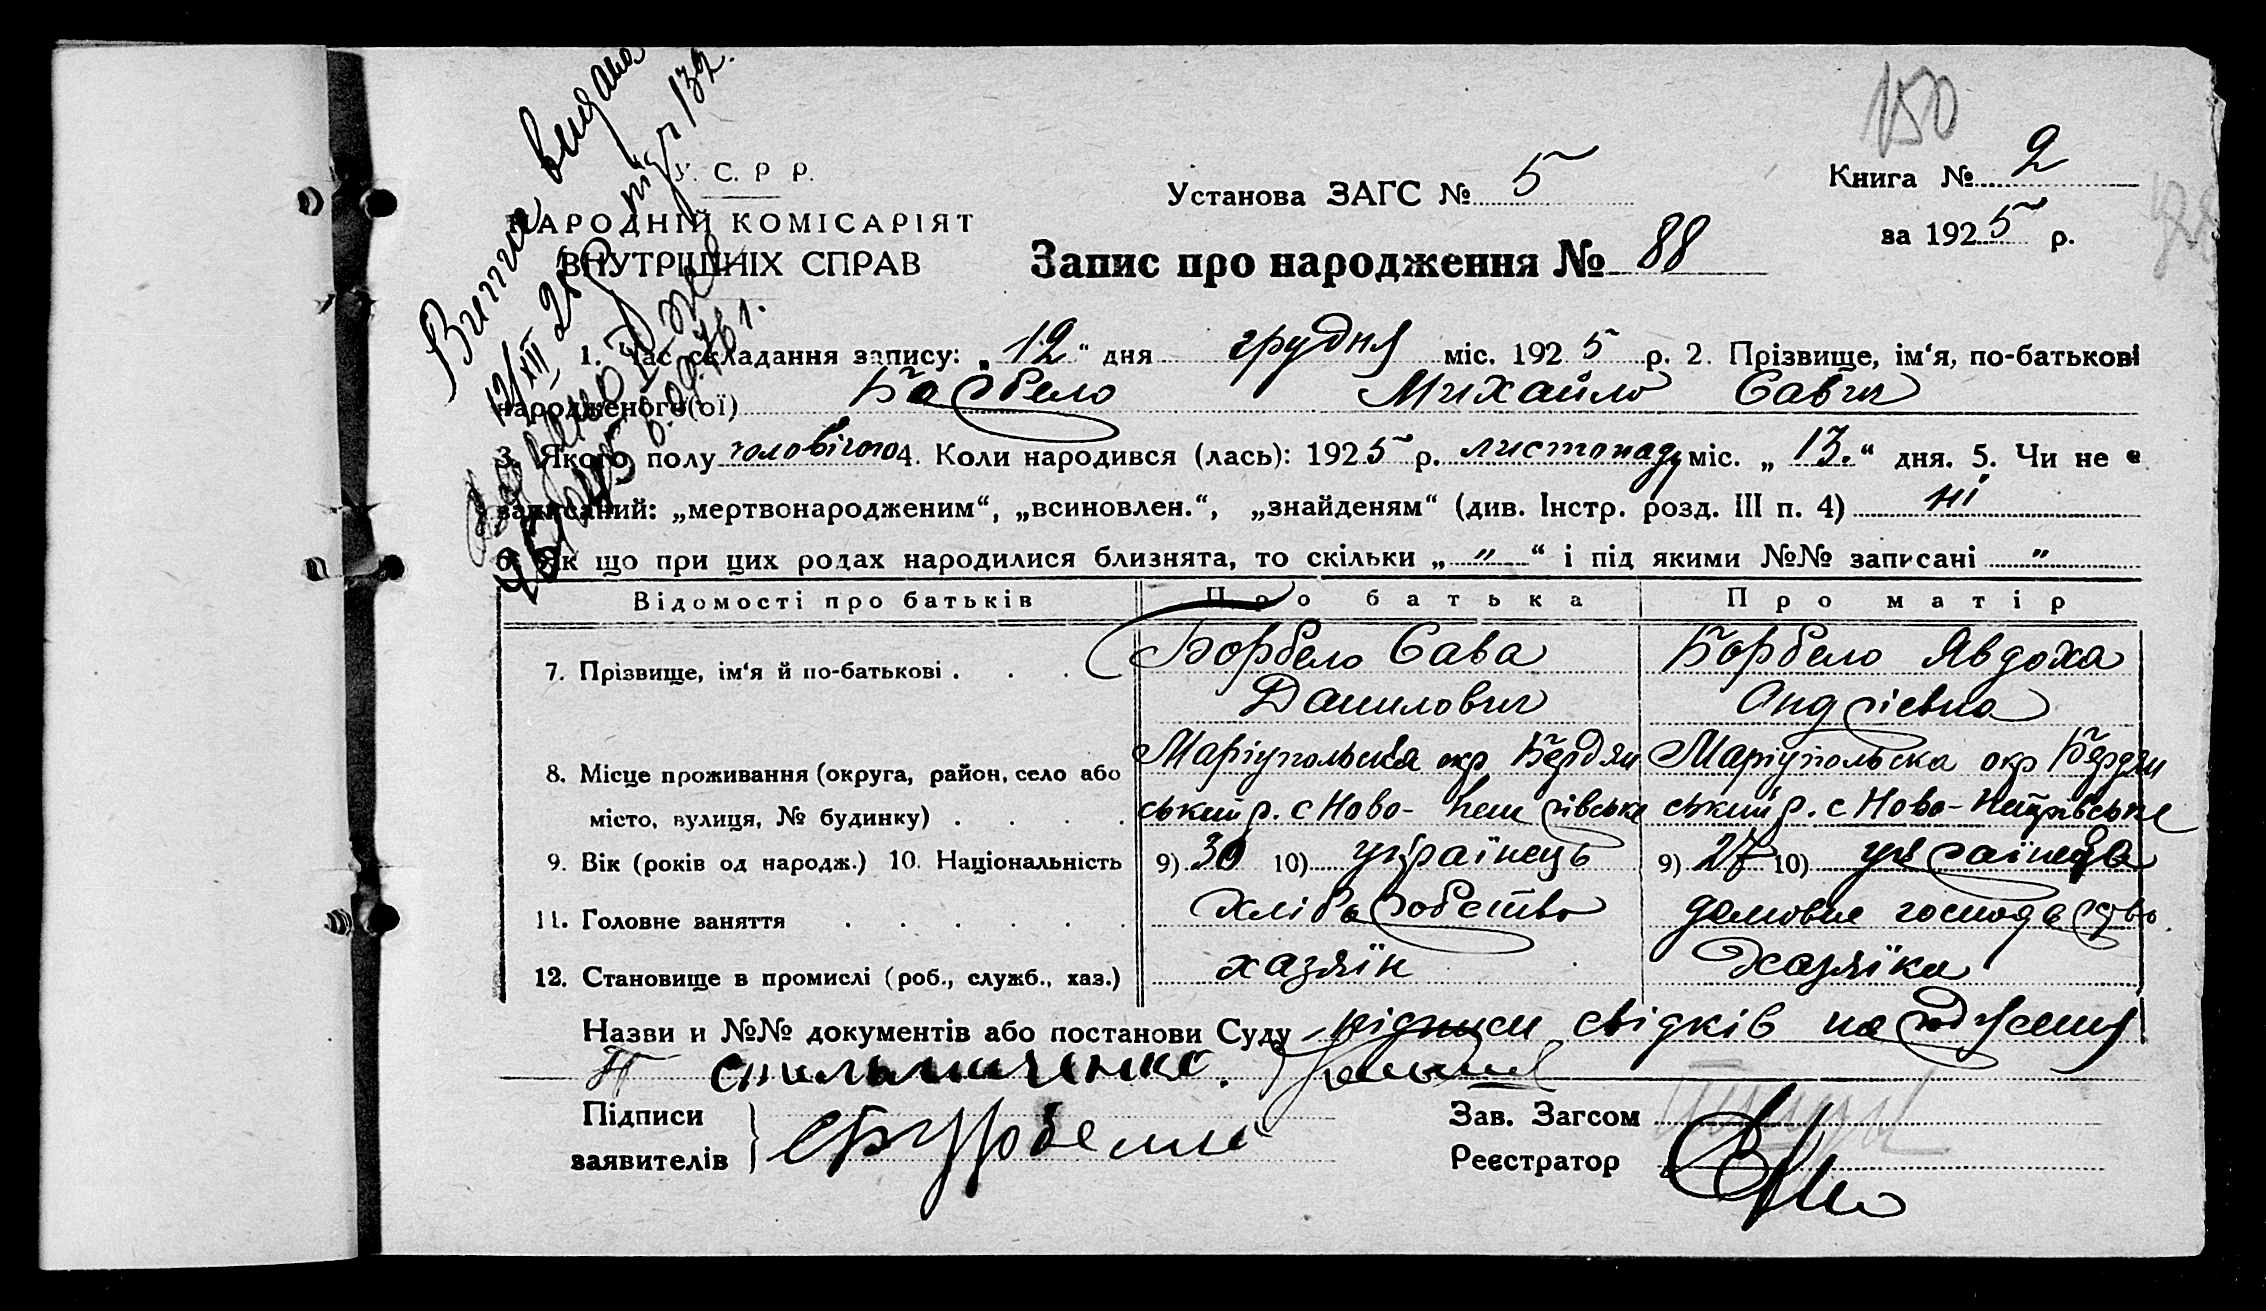 150
У. С. Р Р.
НАРОДНІЙ КОМІСАРІЯТ
ВНУТРІШНІХ СПРАВ
Установа ЗАГС № 5
Книга № 2
за 1925 р.
Запис про народження № 88
1. Час складання запису: „12“ дня грудня міс. 1925 р. 2. Прізвище, ім‘я, по-батькові
народженого(ої) Борбело Михайло Савич
3. Якого полу чоловічого 4. Коли народився (лась): 1925 р. листопаду міс. „13.“ дня. 5. Чи не є
записаний: „мертвонародженим“, „всиновлен.“, „знайденям“ (див. Інстр. розд. III п. 4) ні
6. Як що при цих родах народилися близнята, то скільки „ " “ і під якими №№ записані "
Відомості про батьків Про батька Про матір
7. Прізвище, ім‘я й по-батькові . . . Борбело Сава Борбело Явдоха
Данилович Андріевна
8. Місце проживання (округа, район, село або Маріупольска окр Бердян Маріупольска окр Бердян
місто, вулиця, № будинку) . . . . ський р. с Ново- ський р. с Ново-
9. Вік (років од народж.) 10. Національність 9) 30 10) українець 9) 27 10)
11. Головне заняття . . . . . . Хлібаробство домовне господарство.
12. Становище в промислі (роб., служб., хаз.) хазяїн Хазяїка
Назви и №№ документів або постанови Суду підписи свідків на
Підписи
заявителів
Зав. Загсом
Реєстратор
Витяг видана
12/XII 25р